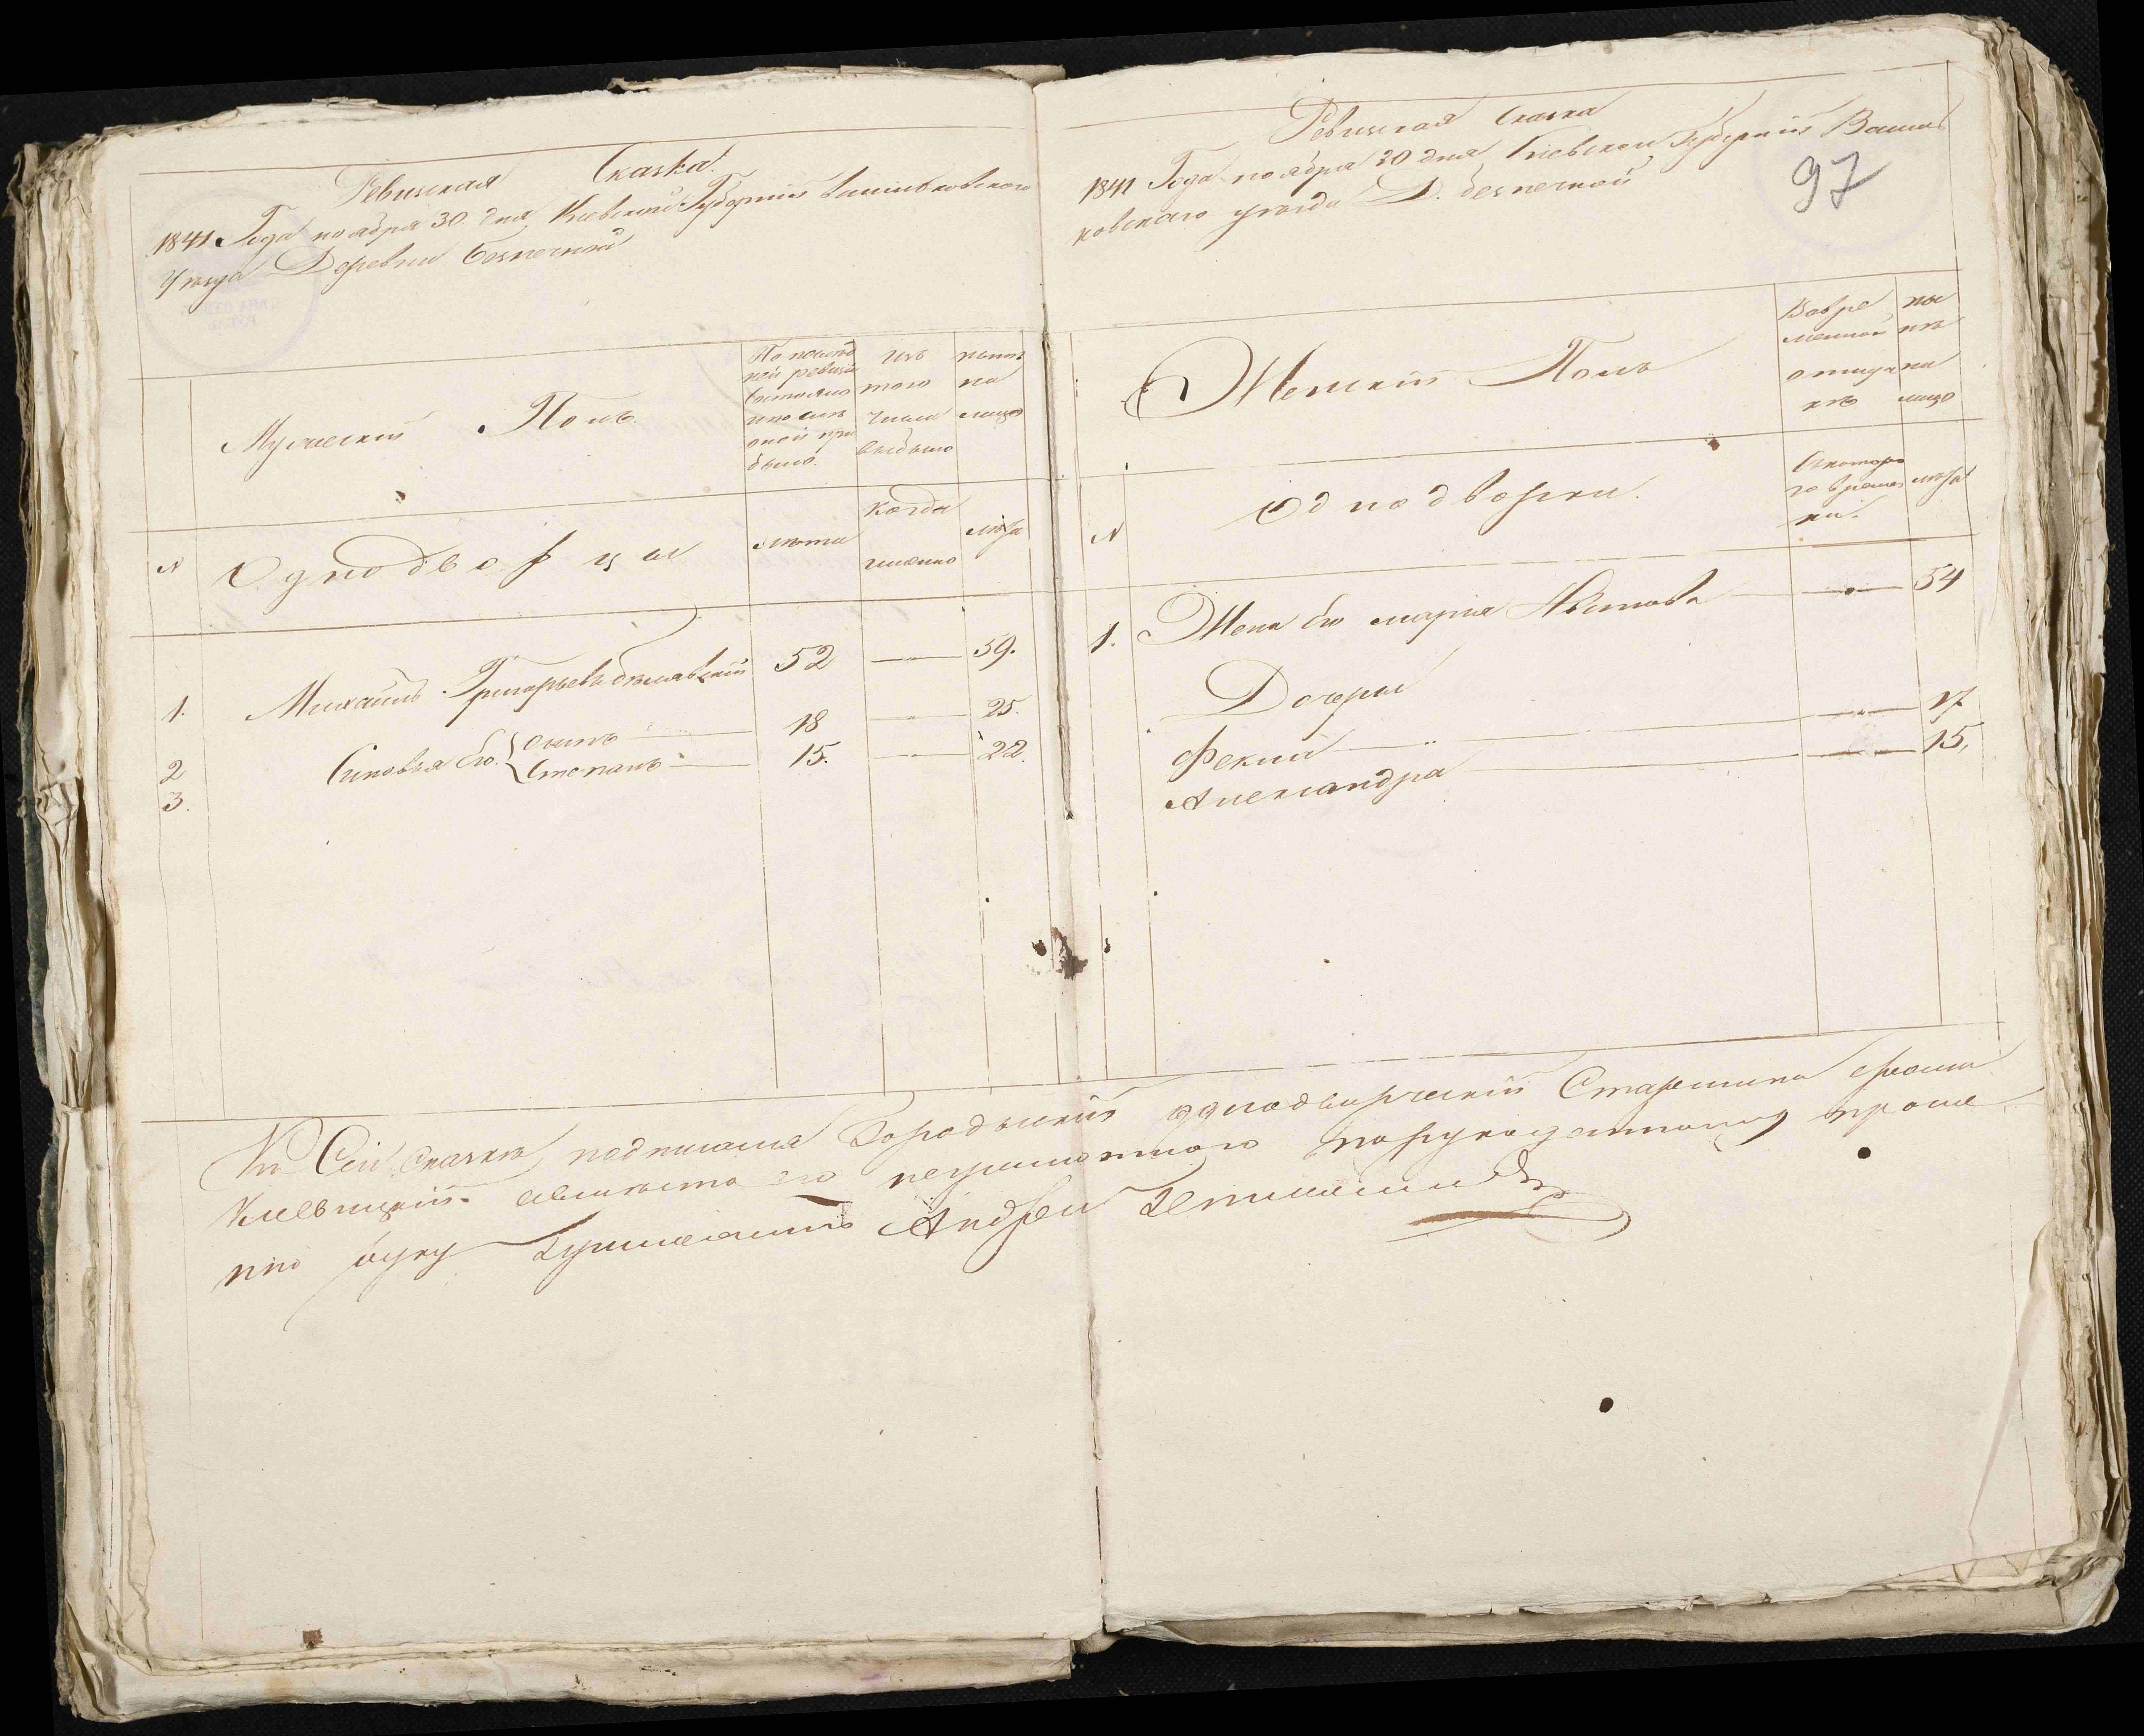 Ревизская Сказка.
1841 Года ноября 30. дня Киевской Губернии васильковского
Уезда Деревни безпечной
Мужеский Полъ.
По послед
ней ревизіи
состояло
и после
оной при
было.
изъ
того
числа
выбыло
ныне
на
лицо
N Однодворцы
лѣта
когда
именно
лѣта
1. Михаилъ Григорьевъ 52 — 59.
2 Синовья Его. Осипъ 18 — 25.
3. Степанъ 15. — 22.
Ревизская Сказка
1841 Года ноября 30 дня Киевской Губерніи Василь
ковскаго уезда Д. безпечной
97
Женскій Полъ
Вовре
менной
отлуч
кѣ
ны
нѣ
на
лицо
N Однодворки.
Съ которо
го време
ни.
лѣта
1. Жена Его марія — 54
Дочери
Фекла — 17
Александра — 15,
Къ Сей Сказкѣ подписался однодворческій Старшина
а вместо его неграмотного по рукоданному проше
нію руку Андрей